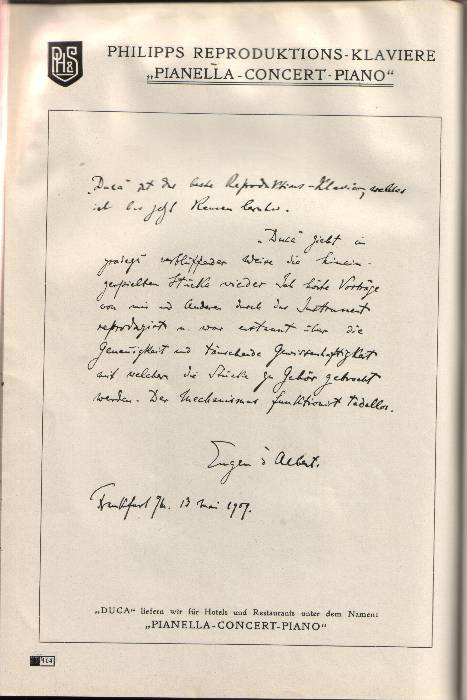 PHILIPPS REPRODUKTIONS-KLAVIERE
„PIANELLA-CONCERT-PIANO“
PH&S
„Duca“ ist das beste Reproduktions-Klavier, welches
ich bis jetzt kennen lernte.
„Duca“ giebt in
verblüffender Weise die hinein-
gespielten Stücke wieder Ich hörte Vorträge
von mir und Anderen durch das Instrument
reproduzirt u. war erstaunt über die
Genauigkeit und täuschende Gewissenhaftigkeit
mit welcher die Stücke zu Gehör gebracht
werden. Der Mechanismus funktionirt tadellos.
Eugen d'Albert.
Frankfurt 13 Mai 1909.
„DUCA“ liefern wir für Hotels und Restaurants unter dem Namen:
„PIANELLA-CONCERT-PIANO“